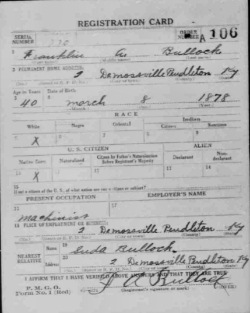 REGISTRATION CARD
SERIAL NUMBER
ORDER NUMBER A 106
Franklin Bullock
PERMANENT HOME ADDRESS
2 Demossville Pendleton Ky
Age in Years
Date of Birth
40 March 8 1878
RACE
White
Negro
Oriental
Indian
X
U. S. CITIZEN
ALIEN
Native Born
Naturalized
Citizen by Father's Naturalization
Before Registrant's Majority
Declarant
Non-declarant
X
If not a citizen of the U. S., of what nation are you a citizen or subject?
PRESENT OCCUPATION
EMPLOYER'S NAME
Machinist
PLACE OF EMPLOYMENT OR BUSINESS
2 Demossville Pendleton Ky
NEAREST RELATIVE
Name
Address
Bullock
2 Demossville Pendleton Ky
I AFFIRM THAT I HAVE VERIFIED ABOVE ANSWERS AND THAT THEY ARE TRUE
P. M. G. O.
Form No. 1 (Red)
Bullock